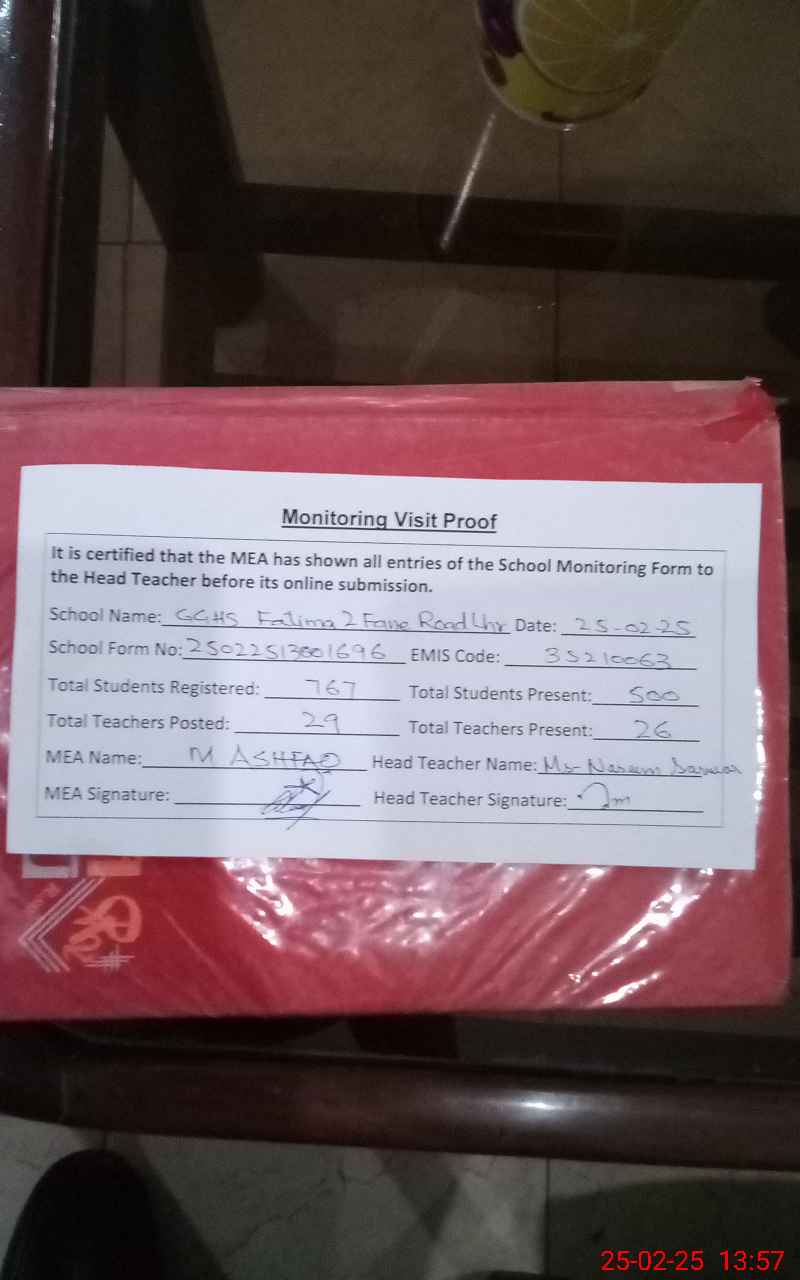 Monitoring Visit Proof
It is certified that the MEA has shown all entries of the School Monitoring Form to
the Head Teacher before its online submission.
School Name: GGHS Fatima J Fane Road Lhr Date: 25-02-25
School Form No: 25022513001696 EMIS Code: 35210063
Total Students Registered: 767 Total Students Present: 500
Total Teachers Posted: 29 Total Teachers Present: 26
MEA Name: M ASHFAQ Head Teacher Name: Ms Naseem Sarwar
MEA Signature: Head Teacher Signature:
25-02-25 13:57